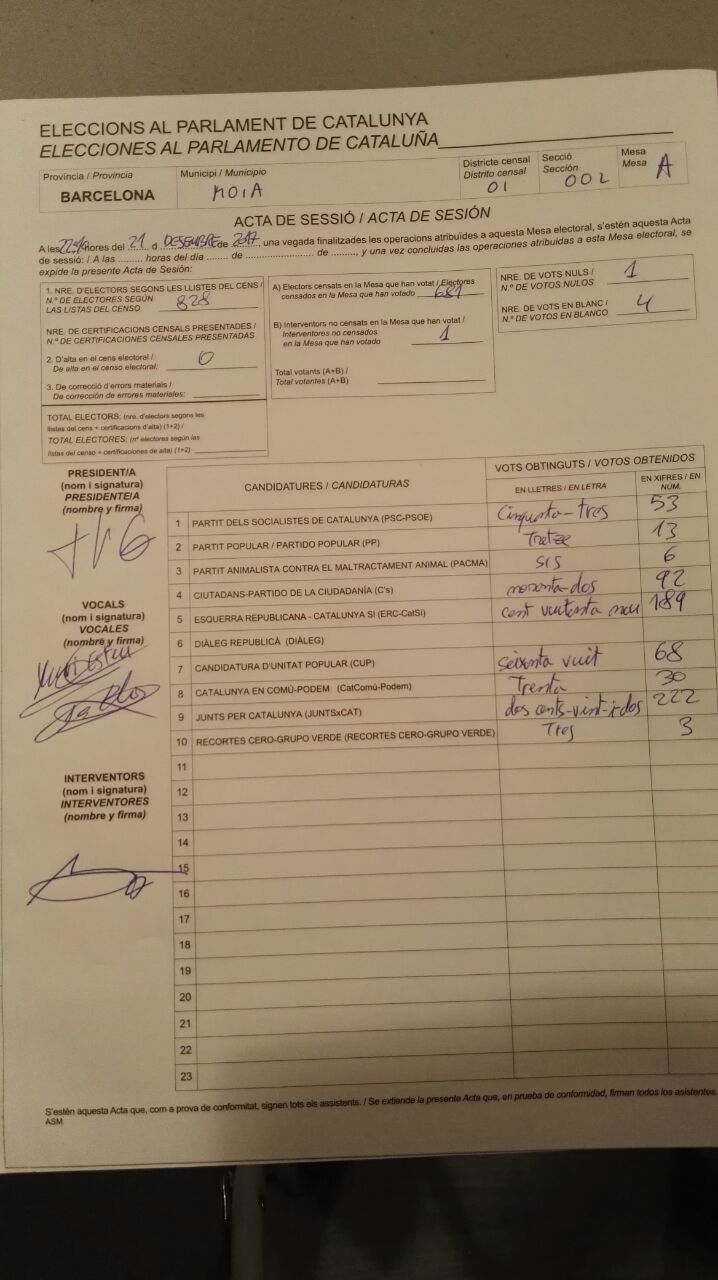 ELECCIONS AL PARLAMENT DE CATALUNYA
ELECCIONES AL PARLAMENTO DE CATALUÑA
Província / Provincia
BARCELONA
Municipi / Municipio
MOIA
Districte censal
Distrito censal
01
Secció
Sección
002
Mesa
Mesa
A
ACTA DE SESSIÓ / ACTA DE SESIÓN
A les hores del 21 d DESEMBRE de 2017, una vegada finalitzades les operacions atribuïdes a aquesta Mesa electoral, s'estén aquesta Acta
de sessió: / A las ......... horas del día ....... de ...................... de ........., y una vez concluidas las operaciones atribuidas a esta Mesa electoral, se
expide la presente Acta de Sesión:
1. NRE. D'ELECTORS SEGONS LES LLISTES DEL CENS /
N.º DE ELECTORES SEGÚN
LAS LISTAS DEL CENSO 828
NRE. DE CERTIFICACIONS CENSALS PRESENTADES /
N.º DE CERTIFICACIONES CENSALES PRESENTADAS
2. D'alta en el cens electoral /
De alta en el censo electoral: 0
3. De correcció d'errors materials /
De corrección de errores materiales:
TOTAL ELECTORS: (nre. d'electors segons les
llistes del cens + certificacions d'alta) (1+2) /
TOTAL ELECTORES: (nº electores según las
listas del censo + certificaciones de alta) (1+2)
A) Electors censats en la Mesa que han votat / Electores
censados en la Mesa que han votado 681
B) Interventors no censats en la Mesa que han votat /
Interventores no censados
en la Mesa que han votado 1
Total votants (A+B) /
Total votantes (A+B)
NRE. DE VOTS NULS /
N.º DE VOTOS NULOS 1
NRE. DE VOTS EN BLANC /
N.º DE VOTOS EN BLANCO 4
PRESIDENT/A
(nom i signatura)
PRESIDENTE/A
(nombre y firma)
VOCALS
(nom i signatura)
VOCALES
(nombre y firma)
INTERVENTORS
(nom i signatura)
INTERVENTORES
(nombre y firma)
CANDIDATURES / CANDIDATURAS
VOTS OBTINGUTS / VOTOS OBTENIDOS
EN LLETRES / EN LETRA
EN XIFRES / EN NÚM.
1 PARTIT DELS SOCIALISTES DE CATALUNYA (PSC-PSOE) Cinquanta-tres 53
2 PARTIT POPULAR / PARTIDO POPULAR (PP) Tretze 13
3 PARTIT ANIMALISTA CONTRA EL MALTRACTAMENT ANIMAL (PACMA) sis 6
4 CIUTADANS-PARTIDO DE LA CIUDADANÍA (C's) noranta-dos 92
5 ESQUERRA REPUBLICANA - CATALUNYA SÍ (ERC-CatSí) cent vuitanta nou 189
6 DIÀLEG REPUBLICÀ (DIÀLEG)
7 CANDIDATURA D'UNITAT POPULAR (CUP) seixanta vuit 68
8 CATALUNYA EN COMÚ-PODEM (CatComú-Podem) Trenta 30
9 JUNTS PER CATALUNYA (JUNTSxCAT) dos cents-vint-i-dos 222
10 RECORTES CERO-GRUPO VERDE (RECORTES CERO-GRUPO VERDE) Tres 3
11
12
13
14
15
16
17
18
19
20
21
22
23
S'estén aquesta Acta que, com a prova de conformitat, signen tots els assistents. / Se extiende la presente Acta que, en prueba de conformidad, firman todos los asistentes.
ASM